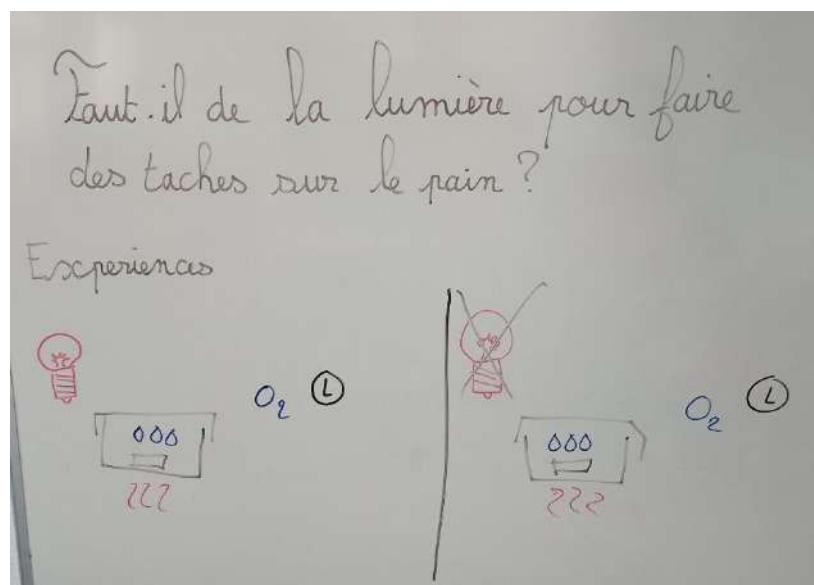 Faut-il de la lumière pour faire
des taches sur le pain ?
Experiences
O₂ L
O₂ L